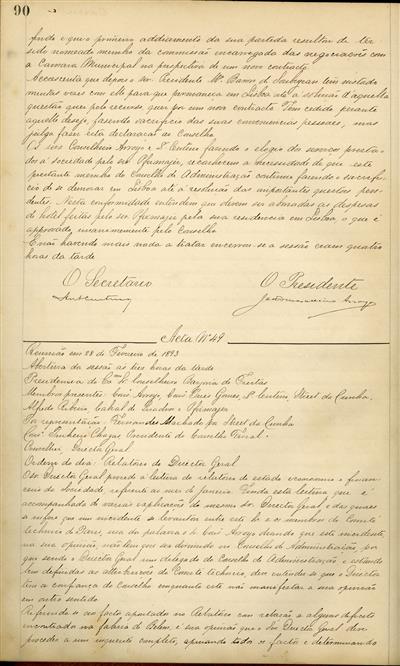 90
onde e que o primeiro addiamento da sua partida resultou de ter
sido nomeado membro da commissão encarregada das negociações com
a Camara Municipal na perspectiva de um novo contracto.
Accrescenta que depois o snr. Presidente Mr. Baron de Soubeyran tem instado
muitas vezes com elle para que permaneça em Lisboa até a solução d'aquella
questão quer pelo recurso, quer por um novo contracto. Tem cedido perante
aquelle desejo, fazendo sacrificio das suas conveniencias pessoaes, mas
julga fazer esta declaração ao Conselho.
Os snrs Conselheiro Arroyo e S. Centeno fazendo o elogio dos serviços presta-
dos á sociedade pelo snr Pfizmayer, reconhecem a necessidade de que este
prestante membro do Conselho de Administração continue fazendo o sacrifi-
cio de se demorar em Lisboa até á resolução das importantes questões pen-
dentes. Nesta conformidade entendem que devem ser abonadas as despezas
de hotel feitas pelo snr Pfizmayer pela sua residencia em Lisboa, o que é
approvado unanimemente pelo Conselho.
E não havendo mais nada a tratar encerrou-se a sessão eram quatro
horas da tarde
O Secretario O Presidente
Acta Nº 49
Reunião em 28 de Fevereiro de 1893
Abertura da sessão ás tres horas da tarde
Presidencia do Exmo Sr. Conselheiro Barjona de Freitas
Membros presentes: Consº Arroyo, Consº Pares Gomes, S. Centeno, Street da Cunha,
Alfredo Ribeiro, Cabral de Quadros e Pfizmayer
Por representação: Fernandes Machado por Street da Cunha
Consº Pinheiro Chagas Presidente do Conselho Fiscal.
Conselheiro Director Geral
Ordem do dia: Relatorio do Director Geral
O snr. Director Geral procede á leitura do relatorio do estado economico e finan-
ceiro da Sociedade, referente ao mez de Janeiro. Finda esta leitura que é
acompanhada de varias explicações do mesmo snr. Director Geral, e das quaes
se infere que um incidente se levantou entre este snr e os membros do Comité
technico de Paris, usa da palavra o snr. Consº Arroyo dizendo que este incidente,
na sua opinião, não tem que ser derimido no Conselho de Administração, por
que sendo o Director Geral um delegado do Conselho de Administração e estando
bem definidas as attribuições do Comité technico, deve entender-se que o Director
tem a confiança do Conselho emquanto este não manifestar a sua opinião
em outro sentido.
Referindo-se ao facto apontado no Relatorio com relação a alguns defeitos
encontrados na fabrica de Belem, é sua opinião que o snr. Director Geral deve
proceder a um inquerito completo, apurando todos os factos e determinando